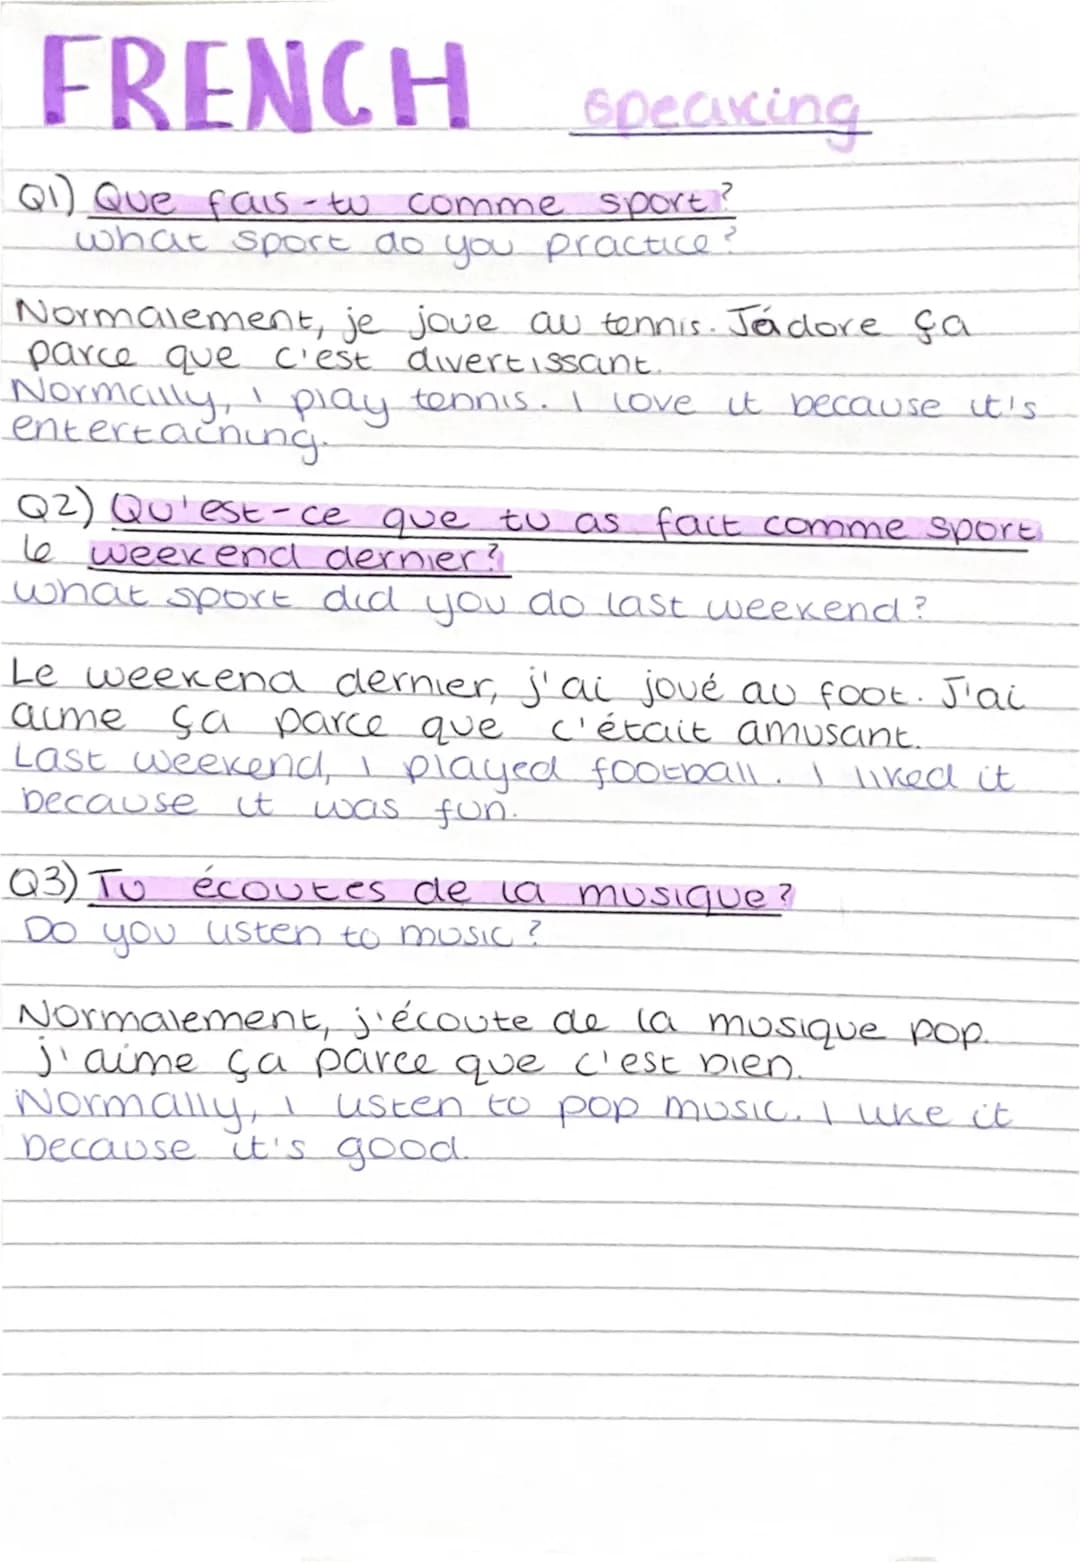 FRENCH speaking
Q1) Que fais-tu comme sport?
what sport do you practice?
Normalement, je joue au tennis. J'adore ça
parce que c'est divertissant.
Normally, I play tennis. I love it because it's
entertaining.
Q2) Qu'est-ce que tu as fait comme sport
le weekend dernier?
what sport did you do last weekend?
Le weekend dernier, j'ai joué au foot. J'ai
aime ça parce que c'était amusant.
Last weekend, I played football. I liked it
because it was fun.
Q3) Tu écoutes de la musique?
Do you listen to music?
Normalement, j'écoute de la musique pop.
j'aime ça parce que c'est bien.
Normally, I listen to pop music. I like it
because it's good.